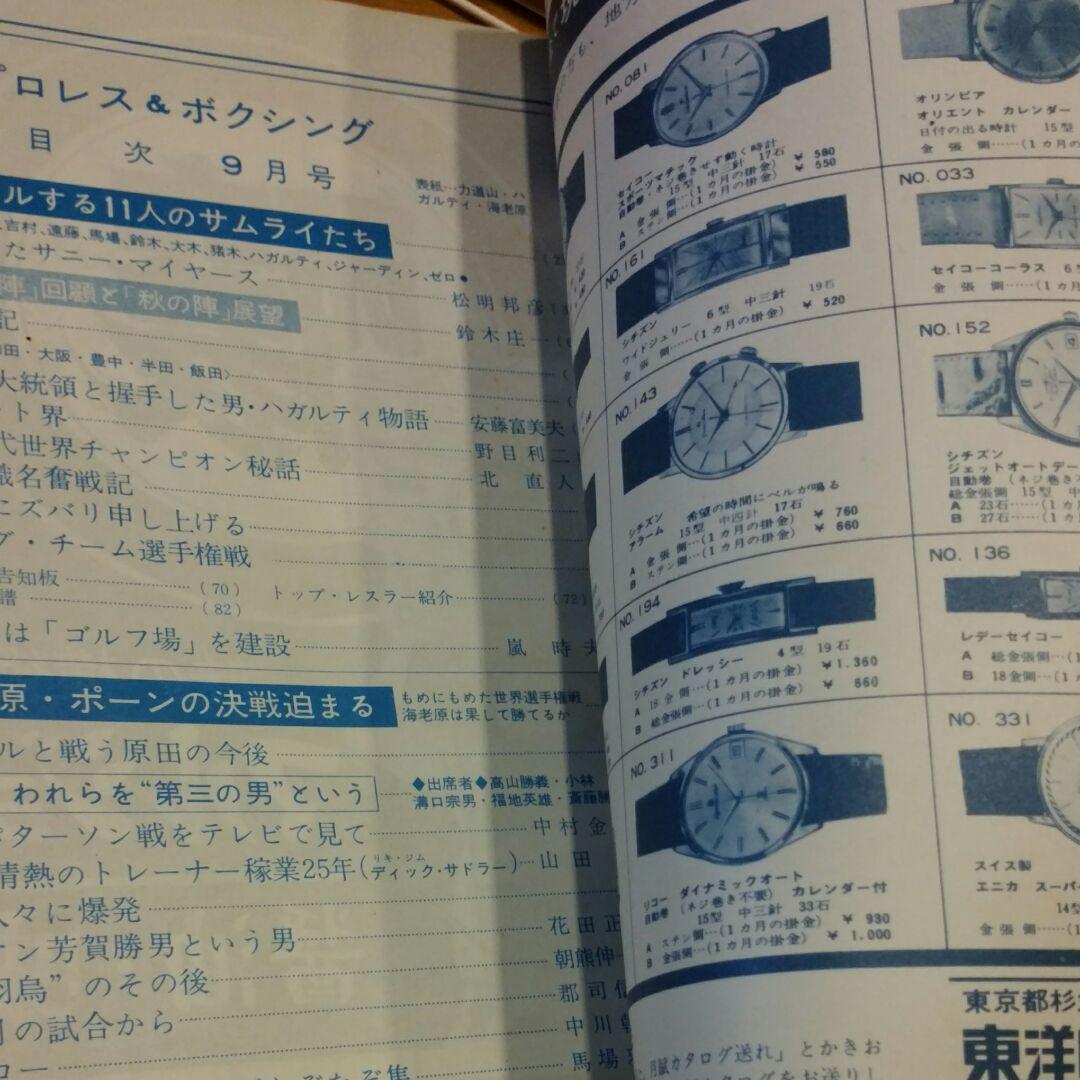 プロレス&ボクシング
目次 9月号
表紙…力道山・ハ
ガルティ・海老原
ルする11人のサムライたち
吉村、遠藤、馬場、鈴木、大木、猪木、ハガルティ、ジャーディン、ゼロ●
たサニー・マイヤース
松明邦彦
陣」回顧と「秋の陣」展望
鈴木庄一
記
田・大阪・豊中・半田・飯田〉
大統領と握手した男・ハガルティ物語
安藤富美夫
ット界
野目利二
代世界チャンピオン秘話
北直人
識名奮戦記
にズバリ申し上げる
グ・チーム選手権戦
告知板 (70)
トップ・レスラー紹介 (72)
譜 (82)
は「ゴルフ場」を建設
嵐時夫
原・ポーンの決戦迫まる
もめにもめた世界選手権戦
海老原は果して勝てるか
ルと戦う原田の今後
われらを“第三の男”という
◆出席者◆高山勝義・小林
溝口宗男・福地英雄・斎藤勝
パターソン戦をテレビで見て
中村金
情熱のトレーナー稼業25年(ディック・サドラー)
リキ・ジム
山田
人々に爆発
花田正
オン芳賀勝男という男
朝熊伸一
羽鳥”のその後
郡司信
月の試合から
中川幹
馬場
NO.081
セイコー
スポーツマチック
自動巻・ネジ巻きせず動く時計
15型 中三針 17石
A 金張側…(1カ月の掛金) ¥580
B ステン側…(1カ月の掛金) ¥550
NO.161
シチズン
ワイドジュリー 6型 中三針 19石
金張側……(1カ月の掛金) ¥520
NO.143
シチズン
アラーム 希望の時間にベルが鳴る
15型 中四針 17石
A 金張側…(1カ月の掛金) ¥760
B ステン側…(1カ月の掛金) ¥660
NO.194
シチズン ドレッシー 4型 19石
A 18金側…(1カ月の掛金) ¥1.360
B 総金張側…(1カ月の掛金) ¥660
NO.311
リコー ダイナミックオート
自動巻 (ネジ巻き不要) カレンダー付
15型 中三針 33石
A ステン側…(1カ月の掛金) ¥930
B 金張側…(1カ月の掛金) ¥1.000
オリンピア
オリエント カレンダー
日付の出る時計 15型
金張側……(1カ月の
NO.033
セイコーコーラス 6型
金張側……(1カ月の
NO.152
シチズン
ジェットオートデー
自動巻 (ネジ巻き不
総金張側 15型 中
A 23石……(1カ月
B 27石……(1カ月
NO.136
レデーセイコー
A 総金張側…(1カ
B 18金側…(1カ
NO.331
スイス製
エニカ スーパー
14型
金張側……(1カ
東京都杉
東洋
月賦カタログ送れ」とかきお